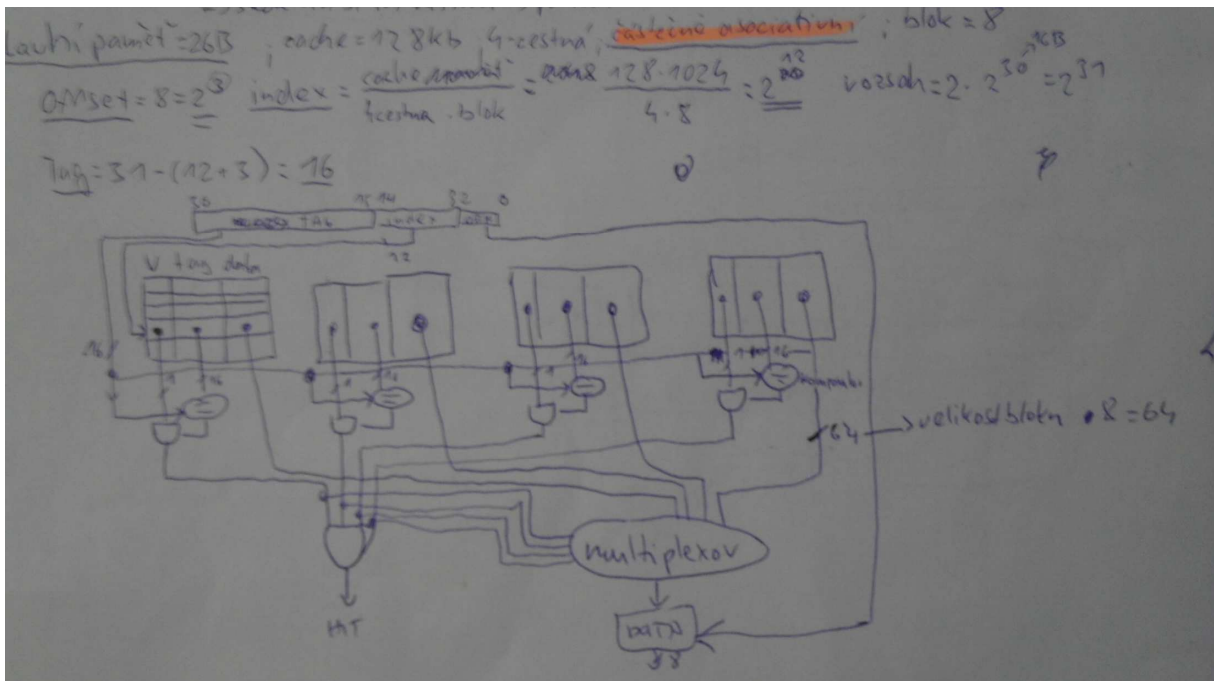 lavní paměť = 2GB ; cache = 128kb 4-cestná, částečně asociativní ; blok = 8
offset = 8 = 2^3 index = cache / 4cestna · blok = 128·1024 / 4·8 = 2^12 rozsah = 2·2^30 = 2^31
Tag = 31 - (12 + 3) = 16
30 15 14 32 0
TAG index
12
V tag data
16
1 16 1 16 1 16 16
= = = =
64 → velikost bloku · 8 = 64
multiplexor
HIT
DATA
8